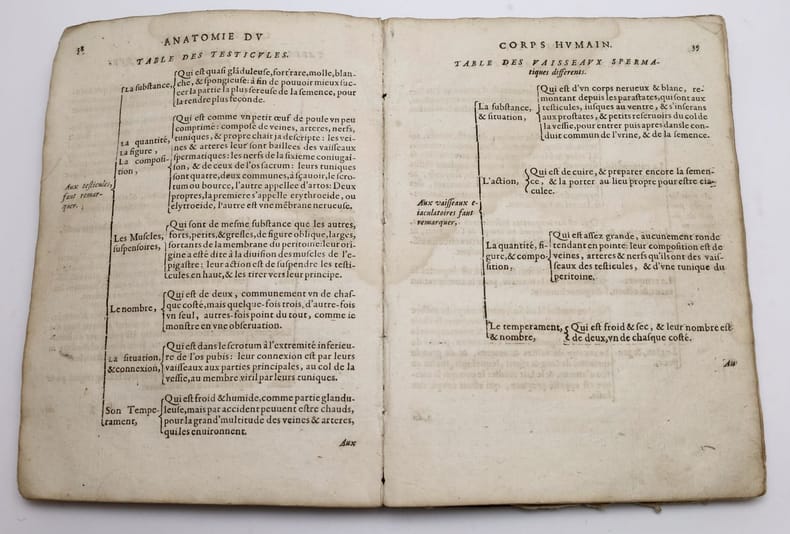 38
ANATOMIE DV
TABLE DES TESTICVLES.
Aux testicules,
faut remar-
quer.
La substance,
Qui est quasi glãduleuse, fort rare, molle, blan-
che, & spongieuse: à fin de pouuoir mieux suc-
cer la partie la plus sereuse de la semence, pour
la rendre plus feconde.
La quantité,
La figure,
La composi-
tion,
Qui est comme vn petit œuf de poule vn peu
comprimé: composé de veines, arteres, nerfs,
tuniques, & propre chair jà descripte: les vei-
nes & arteres leur sont baillees des vaisseaux
spermatiques: les nerfs de la sixieme coniugai-
son, & de ceux de l'os sacrum: leurs tuniques
sont quatre, deux communes, à sçauoir, le scro-
tum ou bource, l'autre appellee d'artos: Deux
propres, la premiere s'appelle erythroeide, ou
elytroeide, l'autre est vne mẽbrane nerueuse.
Les Muscles,
suspensoires,
Qui sont de mesme substance que les autres,
forts, petits, & gresles, de figure oblique, larges,
sortants de la membrane du peritoine: leur ori-
gine a esté dite à la diuision des muscles de l'e-
pigastre: leur action est de suspendre les testi-
cules en haut, & les tirer vers leur principe.
Le nombre,
Qui est de deux, communement vn de chas-
que costé, mais quelque-fois trois, d'autre-fois
vn seul, autres-fois point du tout, comme ie
monstre en vne obseruation.
La situation,
& connexion,
Qui est dans le scrotum à l'extremité inferieu-
re de l'os pubis: leur connexion est par leurs
vaisseaux aux parties principales, au col de la
vessie, au membre viril par leurs tuniques.
Son Tempe-
rament,
Qui est froid & humide, comme partie glandu-
leuse, mais par accident peuuent estre chauds,
pour la grand' multitude des veines & arteres,
qui les enuironnent.
Aux
CORPS HVMAIN.
39
TABLE DES VAISSEAVX SPERMA-
tiques differents.
Aux vaisseaux e-
iaculatoires faut
remarquer.
La substance,
& situation,
Qui est d'vn corps nerueux & blanc, re-
montant depuis les parastates, qui sont aux
testicules, iusques au ventre, & s'inserans
aux prostates, & petits reseruoirs du col de
la vessie, pour entrer puis apres dans le con-
duit commun de l'vrine, & de la semence.
L'action,
Qui est de cuire, & preparer encore la semen-
ce, & la porter au lieu propre pour estre eia-
culee.
La quantité, fi-
gure, & compo-
sition,
Qui est assez grande, aucunement ronde
tendant en pointe: leur composition est de
veines, arteres & nerfs qu'ils ont des vais-
seaux des testicules, & d'vne tunique du
peritoine.
Le temperament,
& nombre,
Qui est froid & sec, & leur nombre est
de deux, vn de chasque costé.
Au